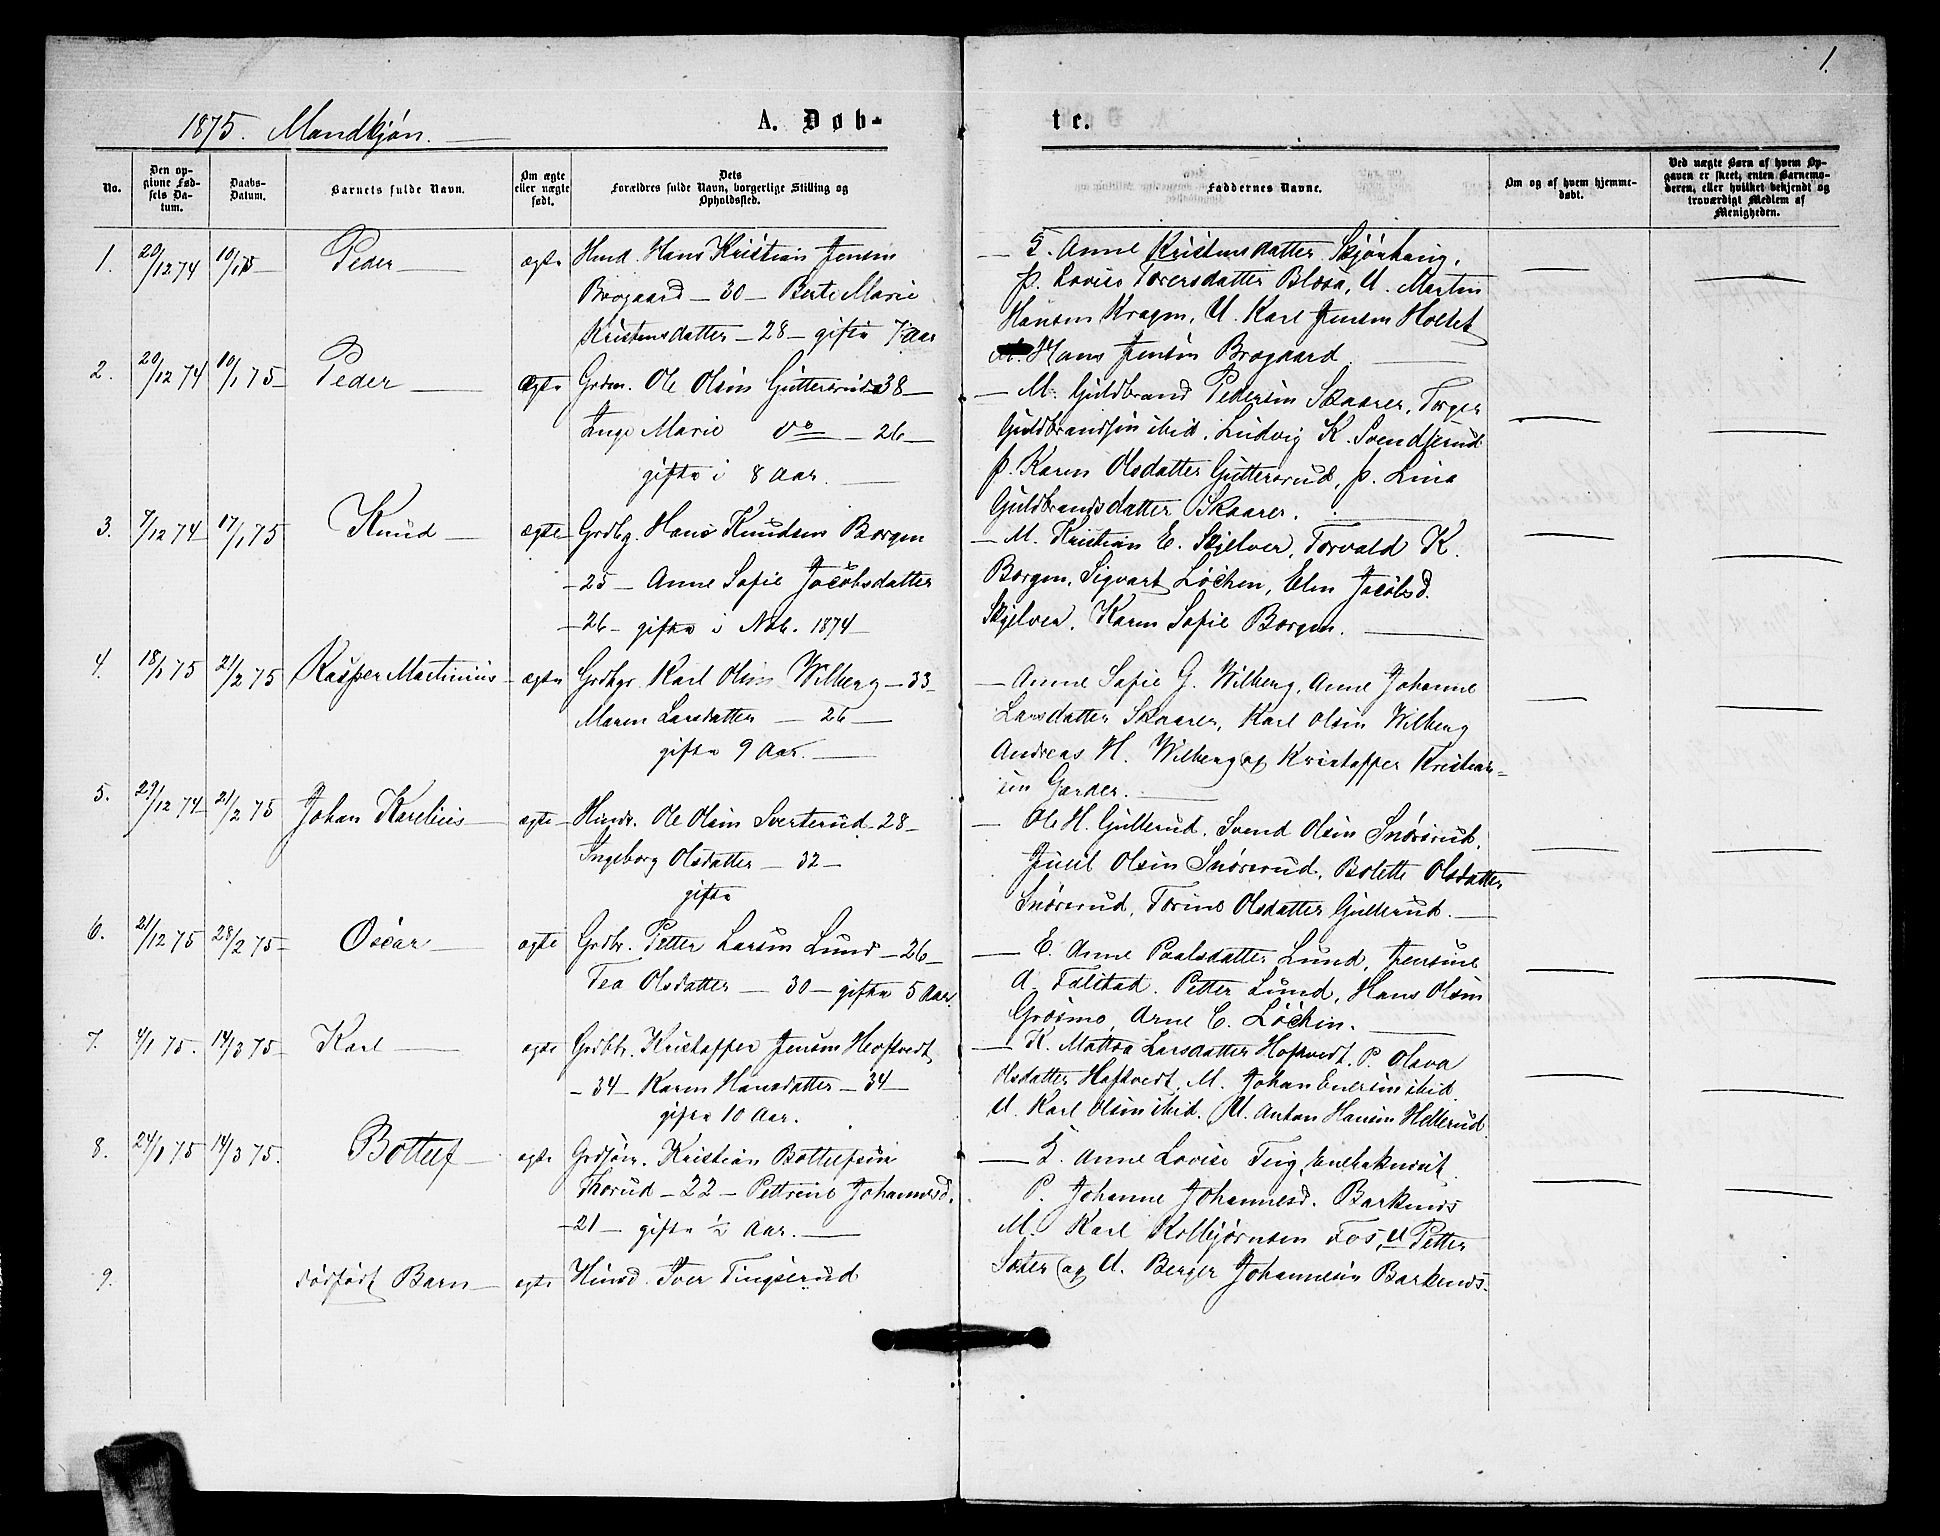 1.
1875. Mandkjøn.
A. Døb-
te.
No.
Den op-
givne Fød-
sels Da-
tum.
Daabs-
Datum.
Barnets fulde Navn.
Om ægte
eller uægte
født.
Dets
Forældres fulde Navn, borgerlige Stilling og
Opholdssted.
Faddernes Navne.
Om og af hvem hjemme-
døbt.
Ved uægte Børn af hvem Op-
gaven er skeet, enten Barnemo-
deren, eller hvilket bekjendt og
troværdigt Medlem af
Menigheden.
1. 20/12 74 10/1 75 Peder ægte Hmd. Hans Kristian Jensen
Brogaard - 30 - Berte Marie
Kristensdatter - 28 - gifte 7 Aar
Anne Kristensdatter Skjønhaug,
p. Lovise Torersdatter U. Martin
Hansen Kragen, U. Karl Jensen Holtet
Hans Jensen Brogaard
2. 20/12 74 10/1 75 Peder ægte Grdm. Ole Olsen Guttersrud 38
Inge Marie Do - 26
gifte i 8 Aar.
M. Guldbrand Pedersen Skaarer, Torger
Guldbrandsen ibid, Ludvig K. Svendserud
p. Karen Olsdatter Guttersrud, p. Lina
Guldbrandsdatter Skaarer.
3. 7/12 74 17/1 75 Knud ægte Grdbg. Hans Knudsen Borgen
- 25 - Anne Sofie Jacobsdatter
- 26 - gifte i Nob. 1874
M. Kristian E. Skjelver, Torvald K.
Borgen, Sigvart Løchen, Elen Jacobsd.
Skjelver, Karen Sofie Borgen.
4. 18/1 75 21/2 75 Kasper Martinius ægte Grdbgr. Karl Olsen Wilberg - 33
Maren Larsdatter - 26
gifte 9 Aar.
Anne Sofie G. Wilberg, Anne Johanne
Larsdatter Skaarer, Karl Olsen Wilberg
Andreas H. Wilberg og Kristoffer Kristian=
sen Garder.
5. 29/12 74 21/2 75 Johan Karelius ægte Hmdr. Ole Olsen Sverterud - 28
Ingeborg Olsdatter - 32
gifte
Ole H. Gullerud, Svend Olsen Snørsrud,
Juul Olsen Snørsrud, Bolette Olsdatter
Snørsrud, Torine Olsdatter Gullerud.
6. 21/12 75 28/2 75 Oscar ægte Grdbr. Petter Larsen Lund - 26
Tea Olsdatter - 30 - gifte 5 Aar.
E. Anne Paalsdatter Lund, Jensine
A. Falstad. Petter Lund, Hans Olsen
Grøsmo, Arne C. Løchen.
7. 4/1 75. 14/3 75 Karl ægte Grdbr. Kristoffer Jensen Hoftvedt
- 34 - Karen Hansdatter - 34
gifte 10 Aar.
K. Mattea Larsdatter Hoftvedt, P. Olava
Olsdatter Hoftvedt, M. Johan Enersen ibid
U. Karl Olsen ibid. U. Anton Hansen Hellerud.
8. 24/1 75 14/3 75. Bottulf ægte Grdfører. Kristian Bottulfsen
Thorud - 22 - Pettrine Johannesd.
- 21 - gifte 1/2 Aar.
Anne Lovise Ting,
P. Johanne Johannesd. Barknæs
M. Karl Kolbjørnsen Fos, U Petter
Sæter og U. Berger Johannesen Barknæs.
9. dødfødt Barn ægte Husmd. Iver Tingserud